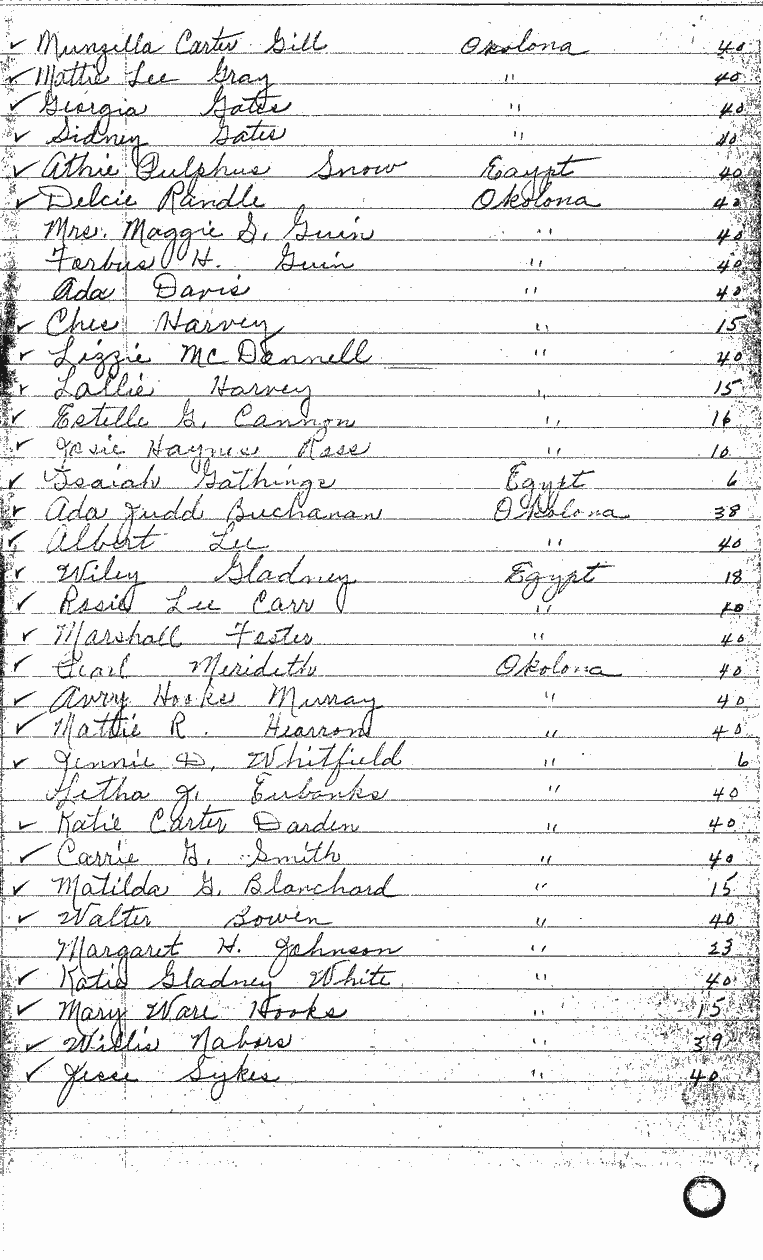 ✓ Munzella Carter Gill Okolona 40
✓ Mattie Lee Gray " 40
✓ Georgia Gates " 40
✓ Sidney Gates " 40
✓ Athie Pulphus Snow Egypt 40
✓ Delcie Randle Okolona 40
Mrs. Maggie S. Guin " 40
Forbus H. Guin " 40
Ada Davis " 40
✓ Ches Harvey " 15
✓ Lizzie McDonnell " 40
✓ Lallie Harvey " 15
✓ Estelle G. Cannon " 16
✓ Josie Haynes Ross " 10
✓ Isaiah Gathings Egypt 6
✓ Ada Judd Buchanan Okolona 38
✓ Albert Lee " 40
✓ Wiley Gladney Egypt 18
✓ Rosie Lee Carr " 40
✓ Marshall Foster " 40
✓ Pearl Merideth Okolona 40
✓ Avry Hooks Murray " 40
✓ Mattie R. Hearrond " 40
✓ Jennie D. Whitfield " 6
Letha J. Eubanks " 40
✓ Katie Carter Darden " 40
✓ Carrie G. Smith " 40
✓ Matilda G. Blanchard " 15
✓ Walter Bowen " 40
Margaret H. Johnson " 23
✓ Katie Gladney White " 40
✓ Mary Ware Hooks " 15
✓ Willis Nabors " 39
✓ Jesse Sykes " 40